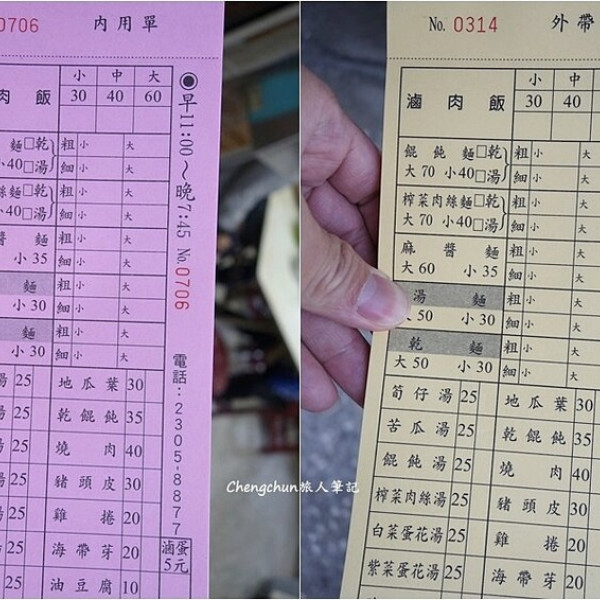 0706 內用單
小 中 大
肉飯 30 40 60
麵□乾 粗 小 大
小40□湯 細 小 大
絲麵□乾 粗 小 大
小40□湯 細 小 大
醬 麵 粗 小 大
小 35 細 小 大
麵 粗 小 大
小 30 細 小 大
麵 粗 小 大
小 30 細 小 大
湯 25 地瓜葉 30
湯 25 乾餛飩 35
湯 25 燒肉 40
湯 25 豬頭皮 30
湯 25 雞捲 20
湯 25 海帶芽 20 滷蛋
湯 25 油豆腐 10 5元
◉早11:00～晚7:45 No.0706
電話:2305-8877
No. 0314 外帶
小 中
滷肉飯 30 40
餛飩麵□乾 粗 小 大
大 70 小40□湯 細 小 大
榨菜肉絲麵□乾 粗 小 大
大 70 小40□湯 細 小 大
麻醬麵 粗 小 大
大 60 小 35 細 小 大
湯麵 粗 小 大
大 50 小 30 細 小 大
乾麵 粗 小 大
大 50 小 30 細 小 大
筍仔湯 25 地瓜葉 30
苦瓜湯 25 乾餛飩 35
餛飩湯 25 燒肉 40
榨菜肉絲湯 25 豬頭皮 30
白菜蛋花湯 25 雞捲 20
紫菜蛋花湯 25 海帶芽 20
Chengchun旅人筆記